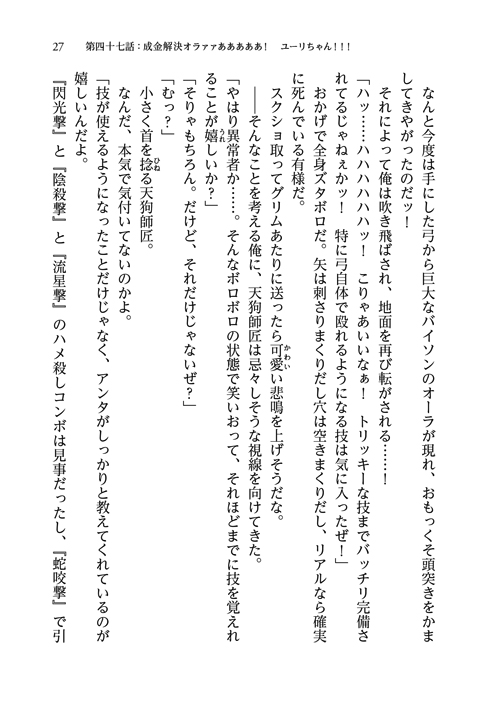 27　第四十七話：成金解決オラァァあああああ！　ユーリちゃん！！！
なんと今度は手にした弓から巨大なバイソンのオーラが現れ、おもっくそ頭突きをかま
してきやがったのだッ！
それによって俺は吹き飛ばされ、地面を再び転がされる……！
「ハッ……ハハハハハハッ！　こりゃあいいなぁ！　トリッキーな技までバッチリ完備さ
れてるじゃねぇかッ！　特に弓自体で殴れるようになる技は気に入ったぜ！」
おかげで全身ズタボロだ。矢は刺さりまくりだし穴は空きまくりだし、リアルなら確実
に死んでいる有様だ。
スクショ取ってグリムあたりに送ったら可愛い悲鳴を上げそうだな。
――そんなことを考える俺に、天狗師匠は忌々しそうな視線を向けてきた。
「やはり異常者か……。そんなボロボロの状態で笑いおって、それほどまでに技を覚えれ
ることが嬉しいか？」
「そりゃもちろん。だけど、それだけじゃないぜ？」
「むっ？」
小さく首を捻る天狗師匠。
なんだ、本気で気付いてないのかよ。
「技が使えるようになったことだけじゃなく、アンタがしっかりと教えてくれているのが
嬉しいんだよ。
『閃光撃』と『陰殺撃』と『流星撃』のハメ殺しコンボは見事だったし、『蛇咬撃』で引